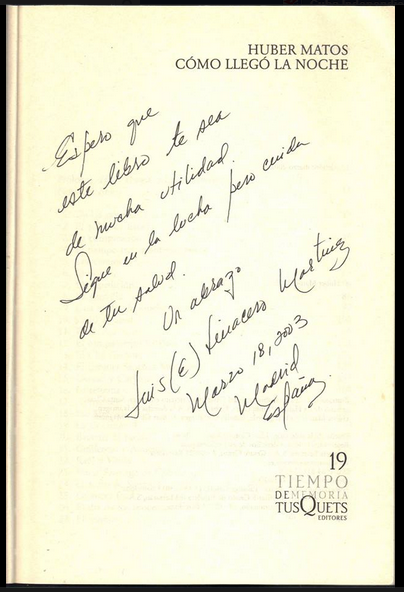 HUBER MATOS
CÓMO LLEGÓ LA NOCHE
Espero que
este libro te sea
de mucha utilidad.
Sigue en la lucha pero cuida
de tu salud.
Un abrazo
Luis (E) Linacero Martinez
Marzo 18, 2003
Madrid
España
19
TIEMPO
DE MEMORIA
TUSQUETS
EDITORES